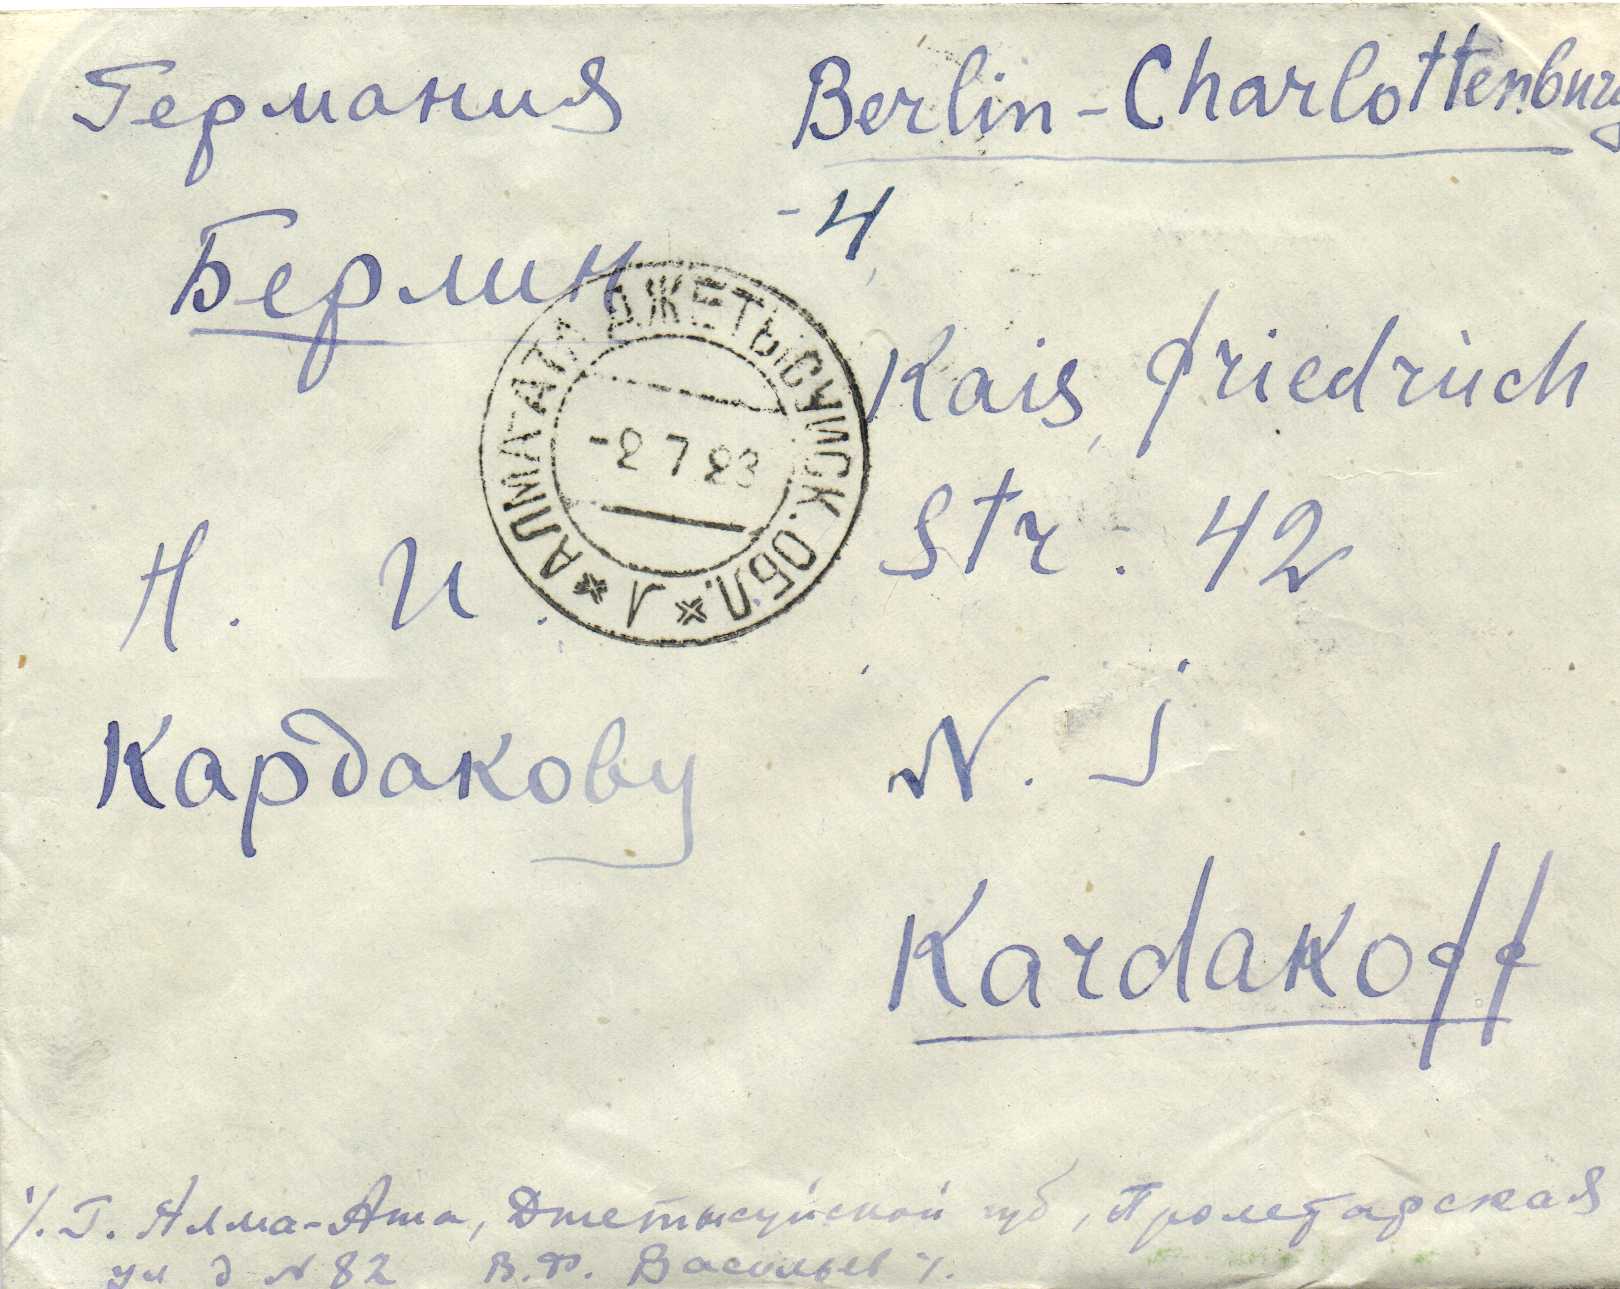 Германия
Берлин
Н. И.
Кардакову
Berlin-Charlottenburg
-4
Kais. Friedrich
Str. 42
N. J.
Kardakoff
АЛМАТАТА ДЖЕТЫСУИСК. ОБЛ. * Л *
-2 7 23
г. Алма-Ата, Джетысуйской губ, Пролетарская
ул д № 82 В. Ф. Васильев